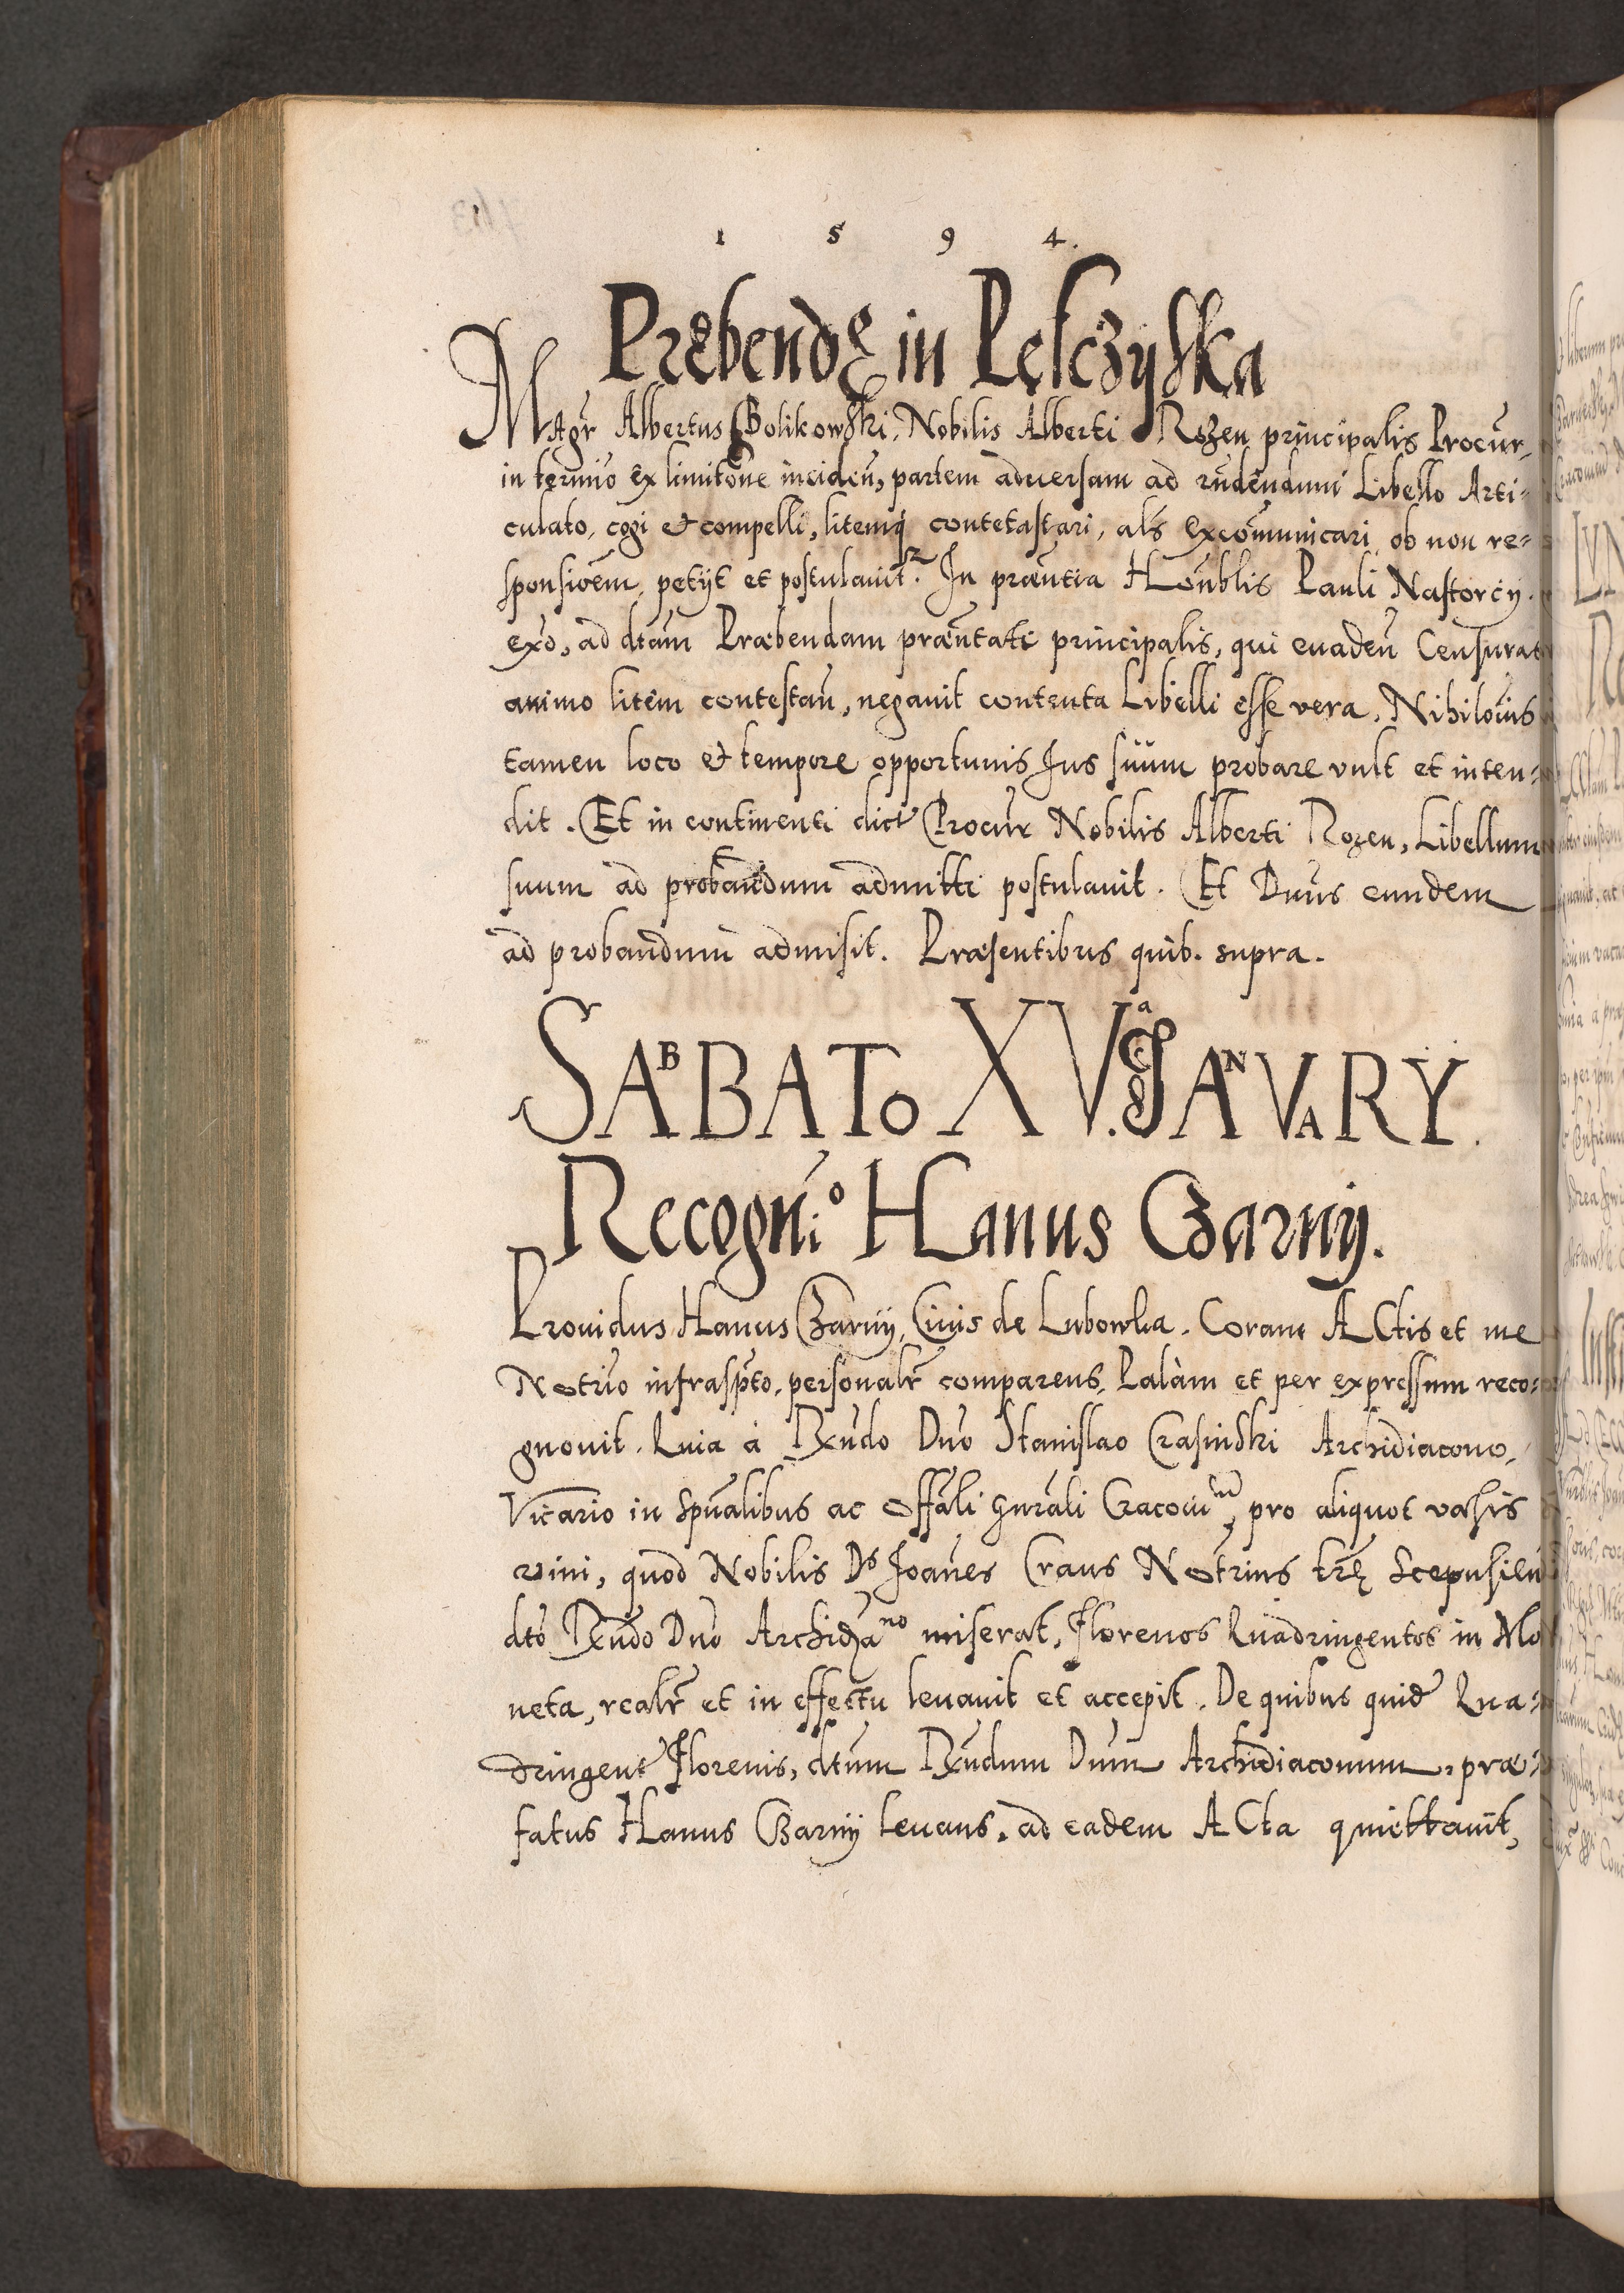 1 5 9 4.
Prębendę in Pełczyska
Magr̃ Albertus Bolikowski, Nobilis Alberti Rozen principalis Procur̃
in termīo ex limitōne incideñ, partem aduersam ad rñdendum Libello Arti-
culato, cogi et compelli, litemq́ contetastari, als̃ excōmunicari, ob non re-
sponsiōem, petÿt et postulauit. In præñtia Honblis Pauli Nastorcÿ.
exo, ad dtam Præbendam præñtati principalis, qui euadeñ Censurar
animo litem contestañ, negauit contenta Libelli esse vera. Nihilomīs
tamen loco et tempore opportunis Jus suum probare vult et inten-
dit. Et in continenti dict Procur̃ Nobilis Alberti Rozen, Libellum
suum ad probandum admitti postulauit. Et Dnus eundem
ad probandum admisit. Præsentibus quib. supra.
SABBATO XV.a JANVARY.
Recogni.o Hanus Czarny.
Prouidus Hanus Czarny, Ciuis de Lubowla. Coram ACtis et me
Notrio infraspto, personalr̃ comparens, Palàm et per expressum reco-
gnouit. Quia à Rñdo Dno Stanislao Crasinski Archidiacono,
Vicario in Spũalibus ac offali gñrali Cracouien, pro aliquot vasis
vini, quod Nobilis Ds Joañes Craus Notrius trę Scepusieñ
dto Rñdo Dno Archidiano miserat, Florenos Quadringentos in Mo
neta, realr̃ et in effectu leuauit et accepit. De quibus quid Qua-
dringent Florenis, dtum Rñdum Dnm Archidiaconum, præ-
fatus Hanus Czarny leuans, ad eadem ACta quittauit,